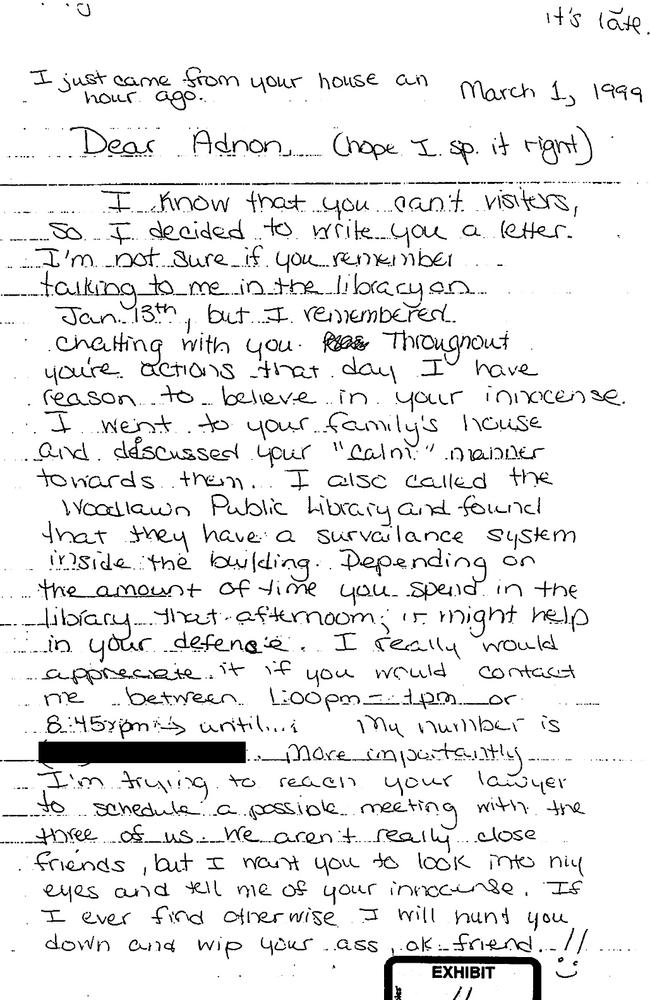 it's late.
I just came from your house an
hour ago.
March 1, 1999
Dear Adnon, (hope I sp. it right)
I know that you can't visitors,
so I decided to write you a letter.
I'm not sure if you remember
talking to me in the library on
Jan. 13th, but I remembered
chatting with you. Throughout
you're actions that day I have
reason to believe in your innocense.
I went to your family's house
and discussed your "calm" manner
towards them. I also called the
Woodlawn Public Library and found
that they have a survailance system
inside the building. Depending on
the amount of time you spend in the
library that afternoon, it might help
in your defense. I really would
appreciate it if you would contact
me between 1:00pm - 4pm or
8:45pm → until...; My number is
. More importantly
I'm trying to reach your lawyer
to schedule a possible meeting with the
three of us. We aren't really close
friends, but I want you to look into my
eyes and tell me of your innocense. If
I ever find otherwise I will hunt you
down and wip your ass, ok friend. //
:)
EXHIBIT